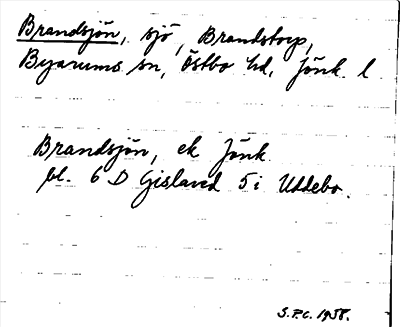 Brandsjön, sjö, Brandstorp,
Byarums sn, Östbo hd, Jönk. l.
Brandsjön, ek Jönk.
bl. 6 D Gislaved 5 i Uddebo.
S.P.C. 1958.